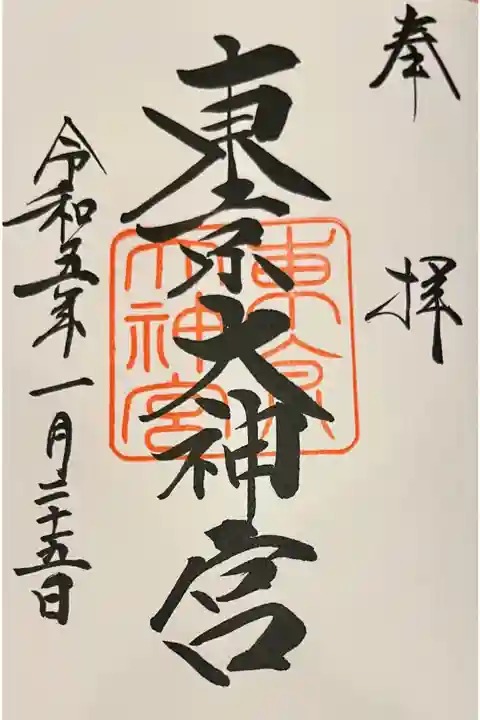 奉拝
東京大神宮
東京大神宮
令和五年一月二十五日